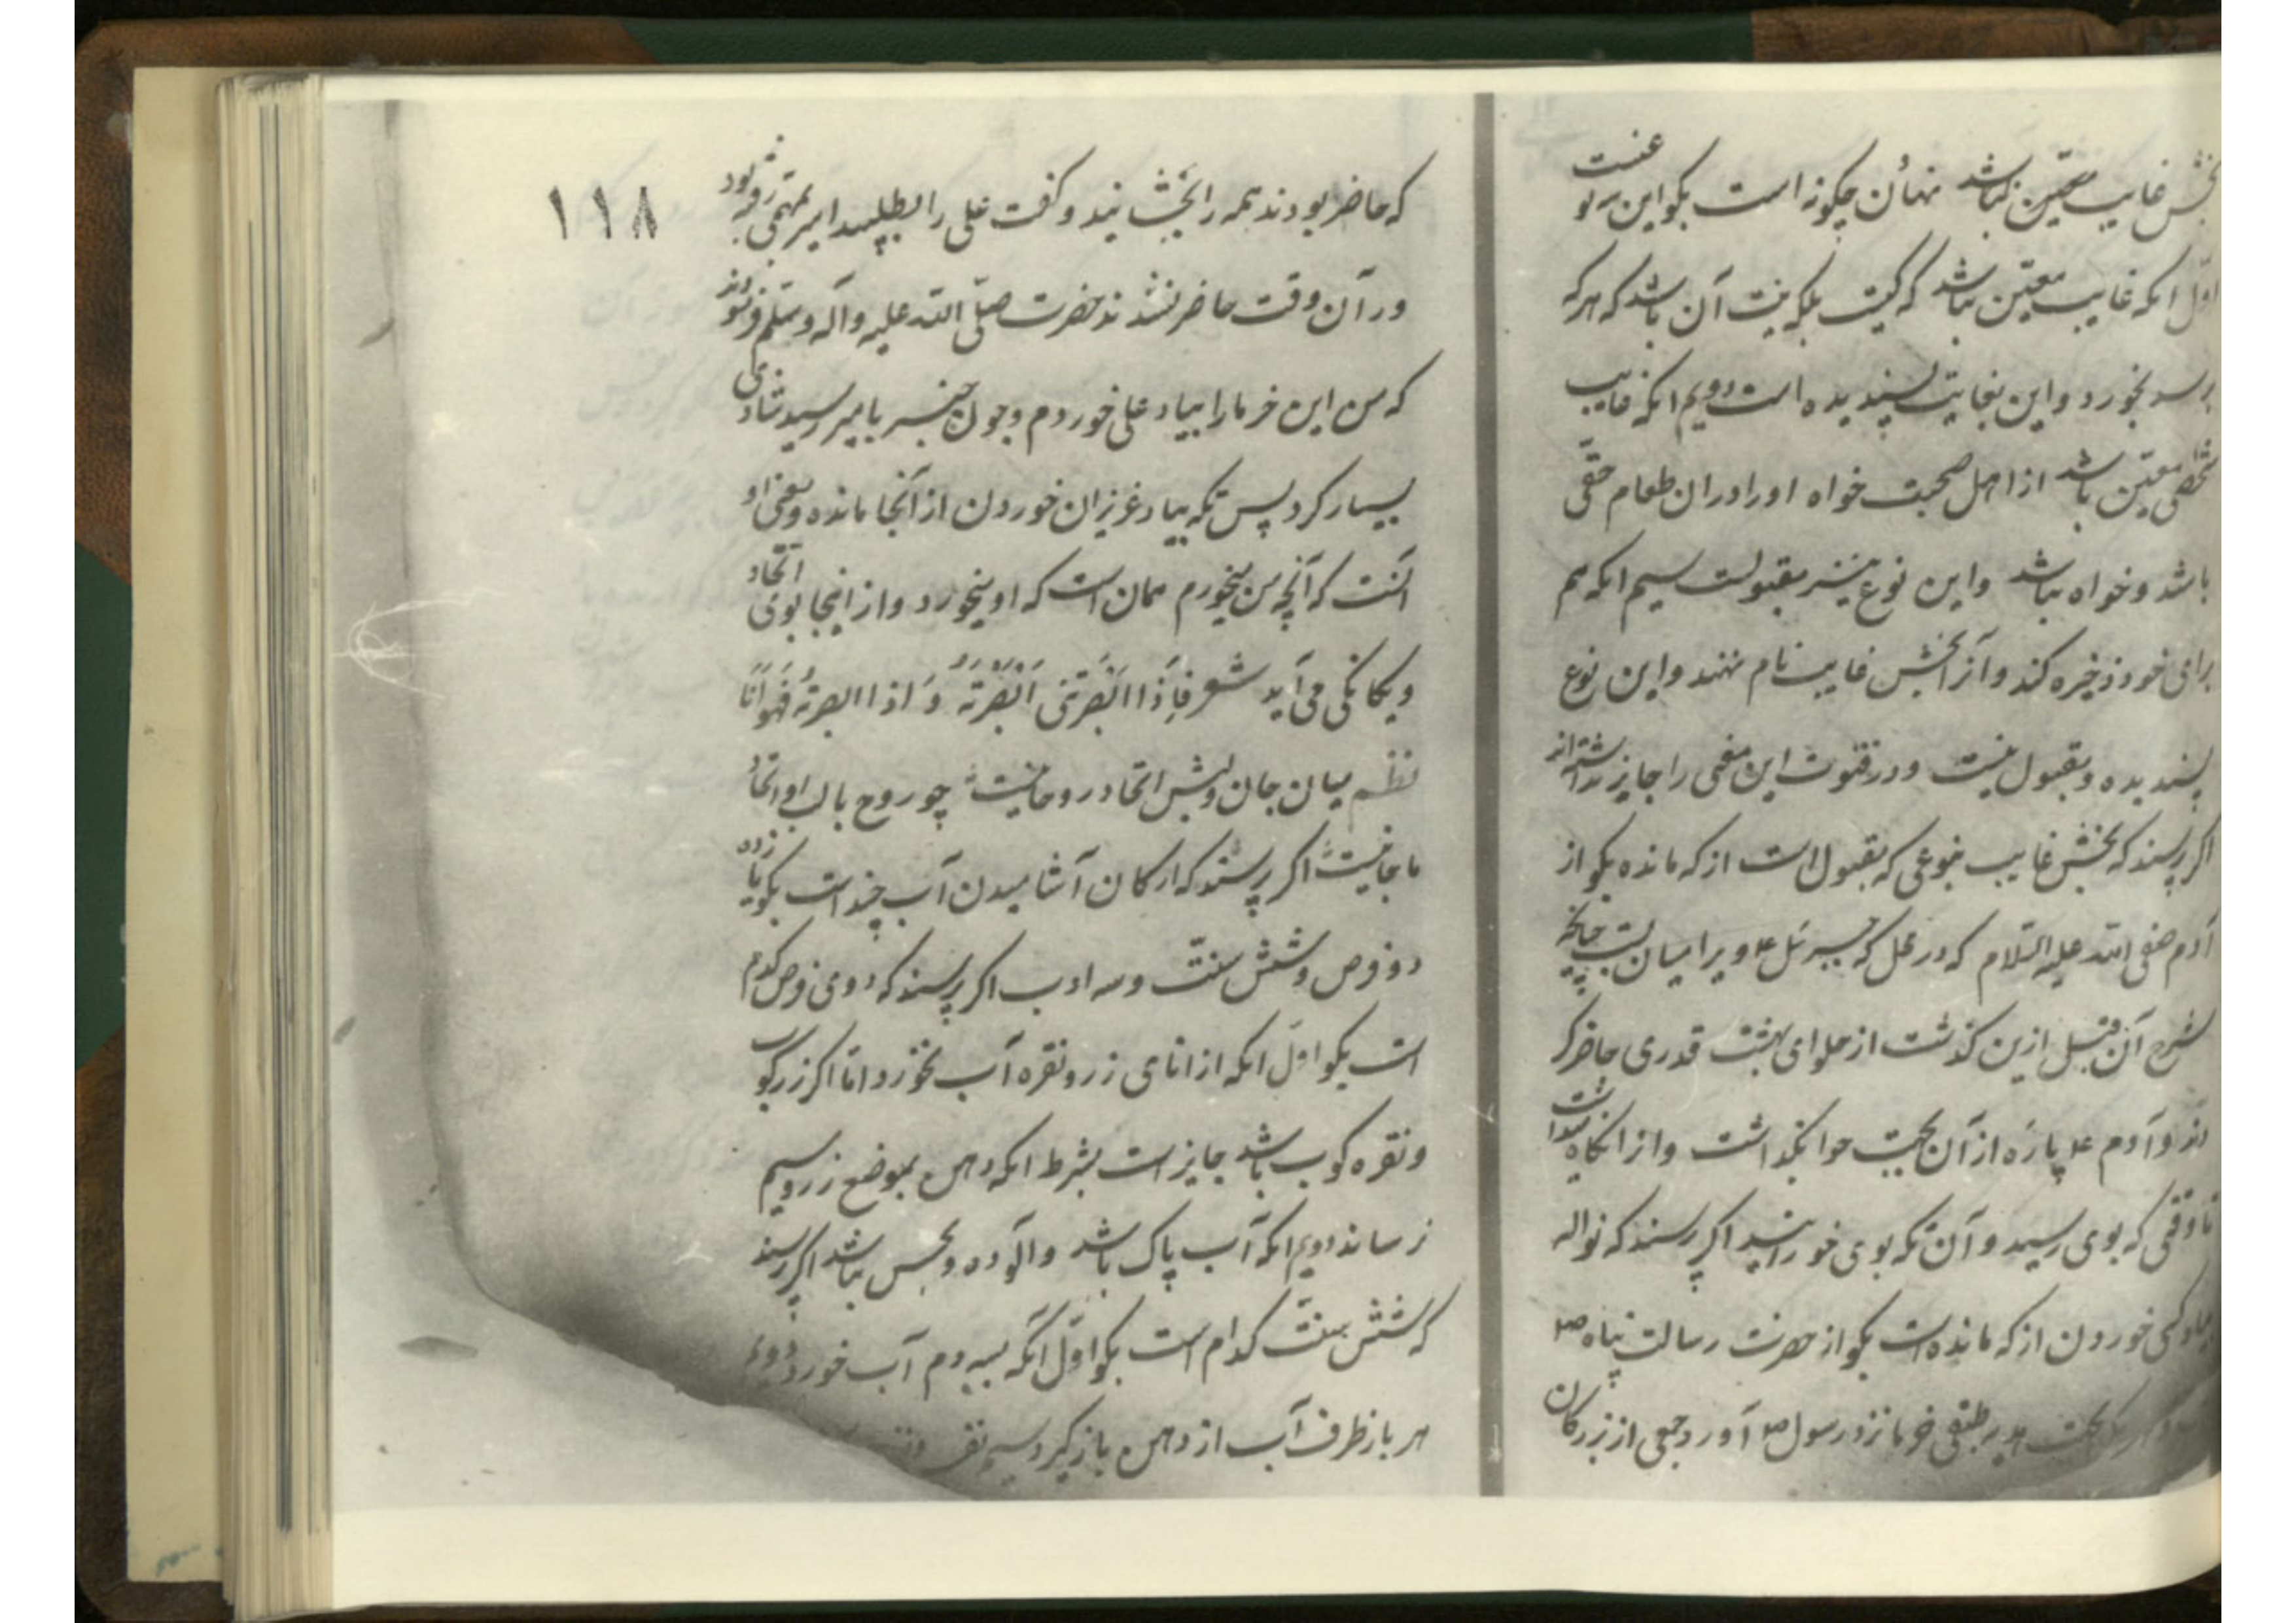 بخش غایب معین نباشد نهان چگونه است بگو این بر سه نوعست
اول انکه غایب معین نباشد که کیست بلکه نیت آن باشد که هر که
برسد بخورد و این بغایت پسندیده است دویم انکه غایب
شخصی معین باشد از اهل صحبت خواه او را در ان طعام حقی
باشد و خواه نباشد و این نوع نیز مقبولست سیم انکه هم
برای خود ذخیره کند و آنرا بخش غایب نام نهند و این نوع
پسندیده و مقبول نیست و در فتوت این معنی را جایز نداشته‌اند
اکر پرسند که بخش غایب بنوعی که مقبول است از که مانده بگو از
آدم صفی الله علیه السلام که در محل که جبرئیل ع ویرا میان بست چنانچه
شرح آن قبل ازین گذشت از حلوای بهشت قدری حاضر کر
دند و آدم ع پاره از آن بجهت حوا نگداشت و از انگاه میداشت
تا وقتی که بوی رسید و آن تکه بوی خورانید اکر پرسند که نواله
بیاد کسی خوردن از که مانده است بگو از حضرت رسالت پناه ص
طبقی خرما نزد رسول ص آورد و جمعی از بزرگان
۱۱۸
که حاضر بودند همه را بخشانید و گفت علی را بطلبید امیر بمهمی رفته بود
و در آن وقت حاضر نشدند حضرت صلی الله علیه وآله وسلم فرمودند
که من این خرما را بیاد علی خوردم و چون خبر بامیر رسید شادی
بسیار کرد پس تکه بیاد عزیزان خوردن از آنجا مانده و معنی او
آنست که آنچه من میخورم همان است که او میخورد و از اینجا بوی اتحاد
و یگانگی می‌آید شعر فَاِذَا اَبْصَرْتَنی اَبْصَرْتَهُ وَ اذا ابصرتهُ فَهُوَ اَنَا
نظم میان جان و لبش اتحاد روحانیست چو روح با لب او اتحاد
ما جانیست اکر پرسند که ارکان آشامیدن آب چند است بگو یازده
دو فرض و شش سنت و سه ادب اکر پرسند که دوی فرض کدام
است بگو اول انکه از انای زر و نقره آب نخورد اما اکر زرکوب
و نقره کوب باشد جایز است بشرط انکه دهن بموضع زر و سیم
نرساند دویم انکه آب پاک باشد و آلوده و نجس نباشد اکر پرسند
که شش سنت کدام است بگو اول انکه بسه دم آب خورد دویم
هر بار ظرف آب از دهن باز گیرد سیم نفس